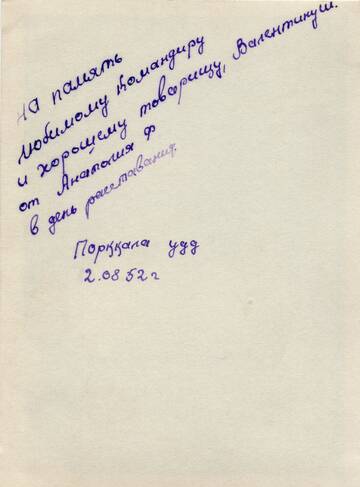 На память
любимому командиру
и хорошему товарищу, Валентикуш.
от Анатолия Ф
в день расставания.
Порккала удд
2.08 52 г